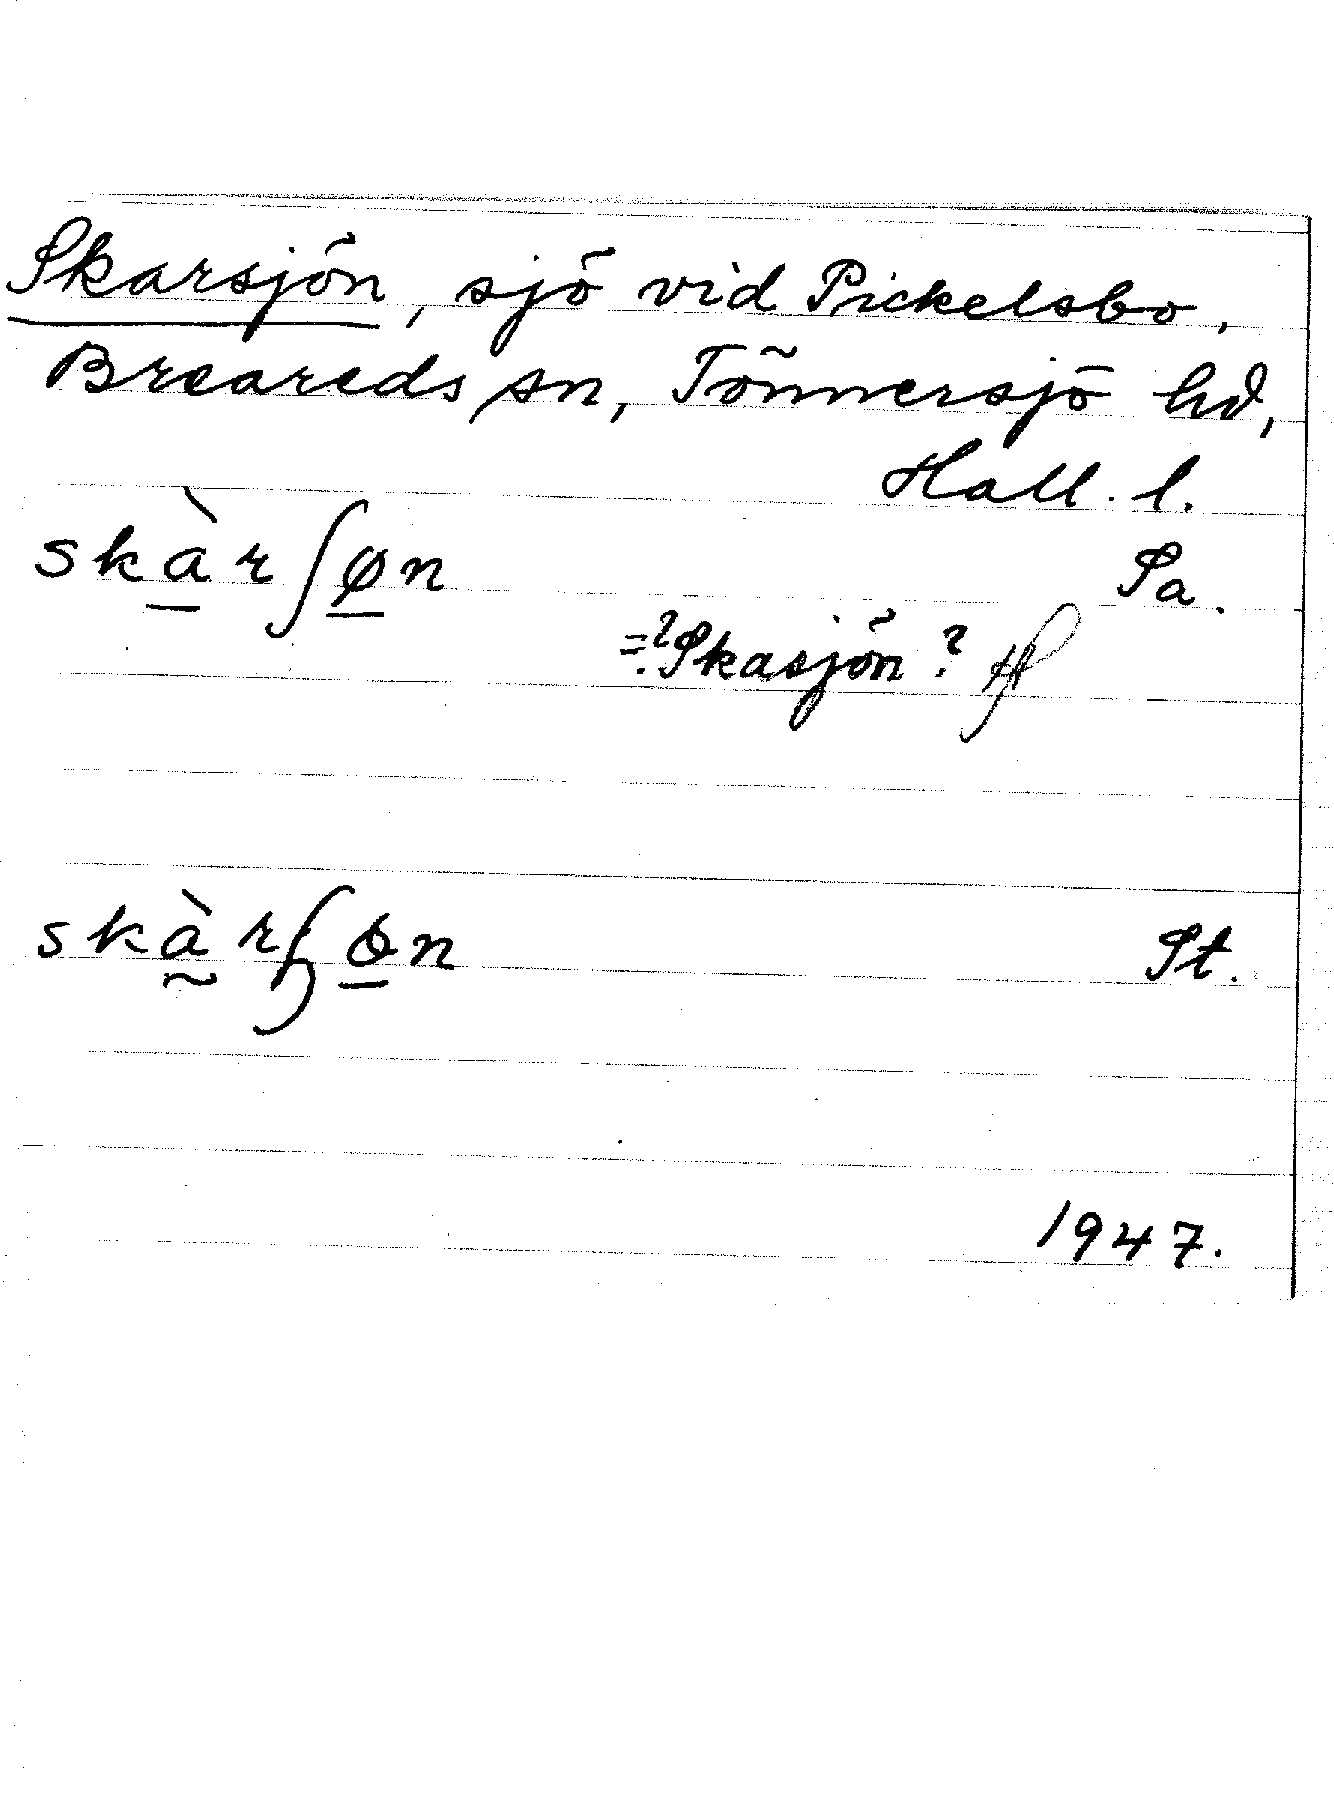 Skarsjön, sjö vid Pickelsbo,
Breareds sn, Tönnersjö hd,
Hall. l.
skàrʃøn Sa.
=? Skasjön?
skàrʃøn St.
1947.